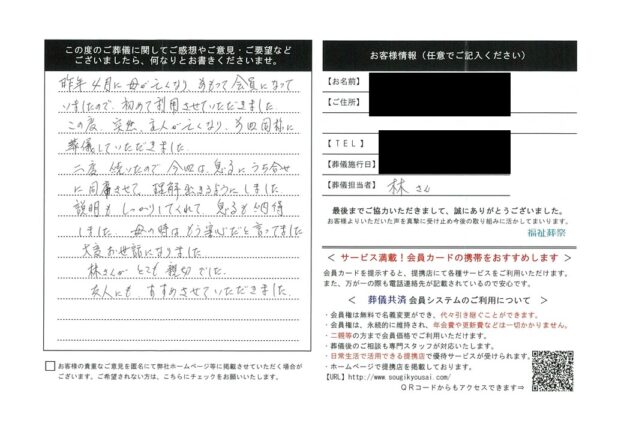 この度のご葬儀に関してご感想やご意見・ご要望など
ございましたら、何なりとお書きくださいませ。
昨年4月に母が亡くなり、まえもって会員になって
いましたので、初めて利用させていただきました
この度、突然、主人が亡くなり、前回同様に
葬儀していただきました。
二度続いたので今回は、息子にうち合せ
に同席させて、理解出来るようにしました
説明もしっかりしてくれて、息子も納得
しました。母の時はもう安心だと言ってました
大変お世話になりました
林さんがとても親切でした。
友人にもすすめさせていただきました。
お客様の貴重なご意見を匿名にて弊社ホームページ等に掲載させていただく場合が
ございます。ご希望されない方は、こちらにチェックをお願いいたします。
お客様情報（任意でご記入ください）
【お名前】
【ご住所】
【TEL】
【葬儀施行日】
【葬儀担当者】 林さん
最後までご協力いただきまして、誠にありがとうございました。
お客様よりいただいた声を真摯に受け止め今後の取り組みに活かしてまいります。
福祉葬祭
＜ サービス満載！会員カードの携帯をおすすめします ＞
会員カードを提示すると、提携店にて各種サービスをご利用いただけます。
また、万が一の際も電話連絡先が記載されているので安心です。
＜ 葬儀共済 会員システムのご利用について ＞
・会員権は無料で名義変更ができ、代々引き継ぐことができます。
・会員権は、永続的に維持され、年会費や更新費などは一切かかりません。
・二親等の方まで会員価格でご利用いただけます。
・葬儀後のご相談も専門スタッフが対応いたします。
・日常生活で活用できる提携店で優待サービスが受けられます。
・ホームページで提携店を掲載しております。
【URL】http://www.sougikyousai.com/
QRコードからもアクセスできます⇒